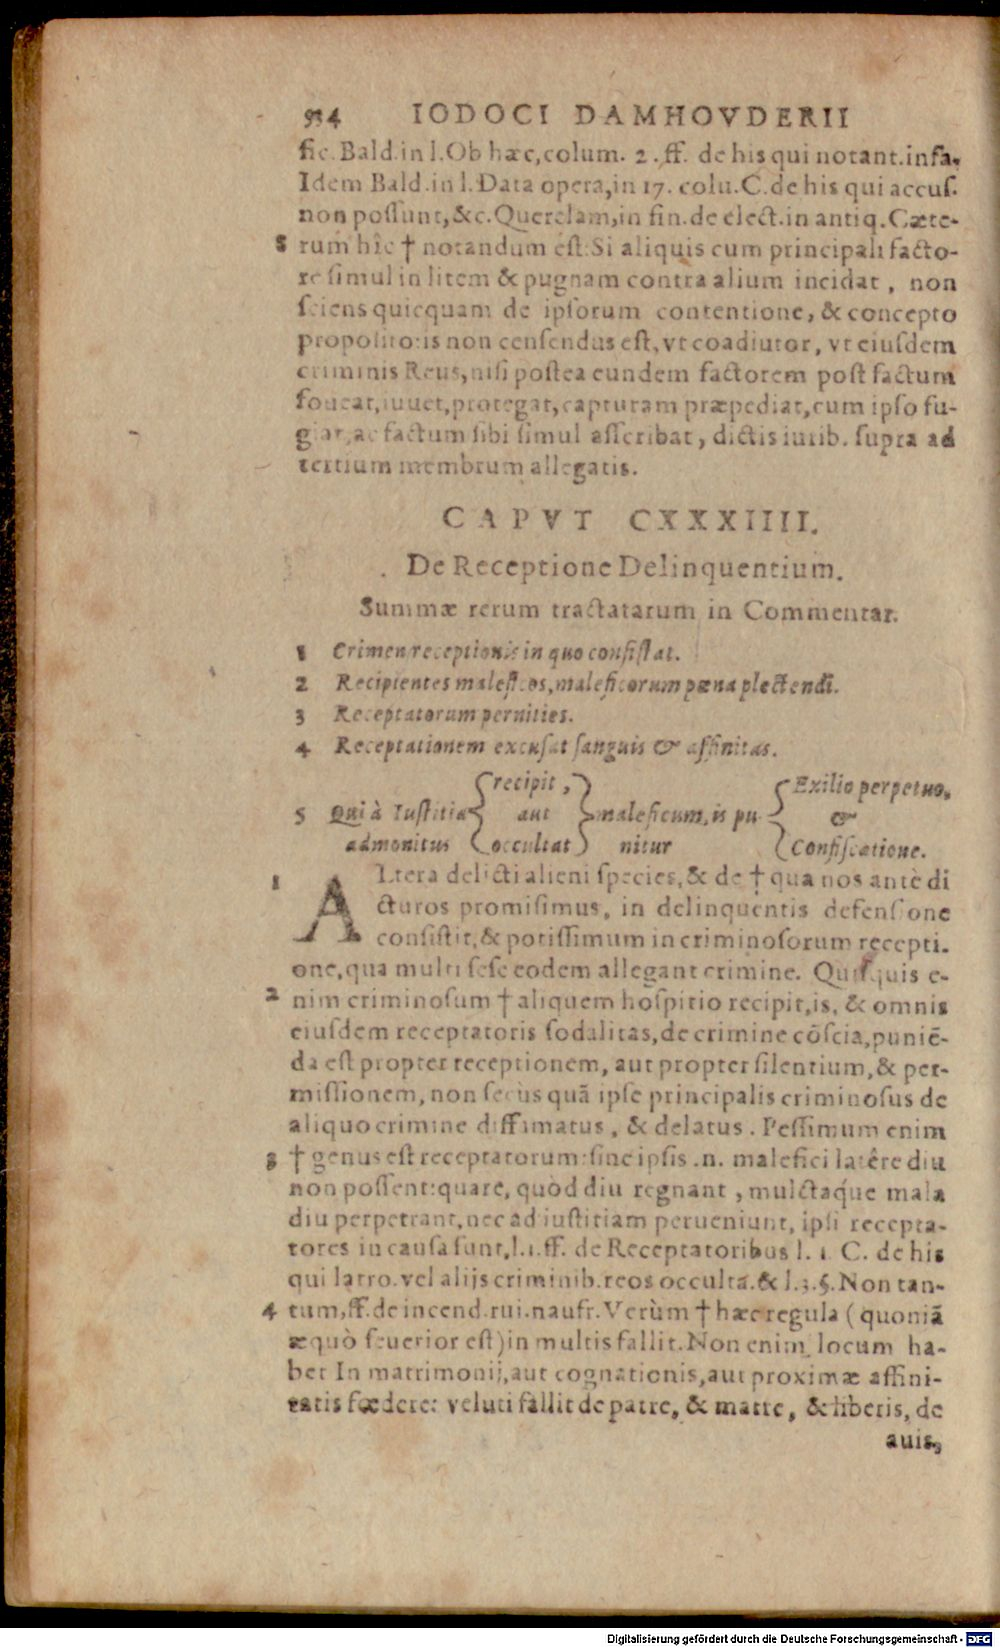 534 IODOCI DAMHOVDERII
sic. Bald. in l. Ob hæc, colum. 2. ff. de his qui notant. infa.
Idem Bald. in l. Data opera, in 17. colu. C. de his qui accuſ.
non poſſunt, &c. Querelam, in fin. de elect. in antiq. Cæte-
8 rum hîc † notandum eſt: Si aliquis cum principali facto-
re ſimul in litem & pugnam contra alium incidat, non
ſciens quicquam de ipſorum contentione, & concepto
propoſito: is non cenſendus eſt, vt coadiutor, vt eiuſdem
criminis Reus, niſi poſtea eundem factorem poſt factum
foueat, iuuet, protegat, capturam præpediat, cum ipſo fu-
giat, ac factum ſibi ſimul aſſeribat, dictis iurib. ſupra ad
tertium membrum allegatis.
CAPVT CXXXIIII.
De Receptione Delinquentium.
Summæ rerum tractatarum in Commentar.
1 Crimen receptionis in quo conſiſtat.
2 Recipientes maleficos, maleficorum pœna plectendi.
3 Receptatorum pernities.
4 Receptationem excuſat ſanguis & affinitas.
recipit, Exilio perpetuo,
5 Qui à Iuſtitia aut maleficum, is pu- &
admonitus occultat nitur Confiſcatione.
1 ALtera delicti alieni ſpecies, & de † qua nos antè di
cturos promiſimus, in delinquentis defenſione
conſiſtit, & potiſſimum in criminoſorum recepti-
one, qua multi ſeſe eodem allegant crimine. Quiſquis e-
2 nim criminoſum † aliquem hoſpitio recipit, is, & omnis
eiuſdem receptatoris ſodalitas, de crimine cōſcia, puniē-
da eſt propter receptionem, aut propter ſilentium, & per-
miſſionem, non ſecùs quã ipſe principalis criminoſus de
aliquo crimine diffamatus, & delatus. Peſſimum enim
3 † genus eſt receptatorum: ſine ipſis .n. malefici latêre diu
non poſſent: quare, quòd diu regnant, mulctaq́ue mala
diu perpetrant, nec ad iuſtitiam perueniunt, ipſi recepta-
tores in cauſa ſunt, l. 1. ff. de Receptatoribus l. 1 C. de his
qui latro. vel alijs criminib. reos occulta. & l. 3. §. Non tan-
4 tum, ff. de incend. rui. naufr. Verùm † hæc regula (quoniã
æquò ſeuerior eſt) in multis fallit. Non enim locum ha-
bet In matrimonij, aut cognationis, aut proximæ affini-
tatis fœdere: veluti fallit de patre, & matre, & liberis, de
auis,
Digitalisierung gefördert durch die Deutsche Forschungsgemeinschaft - DFG